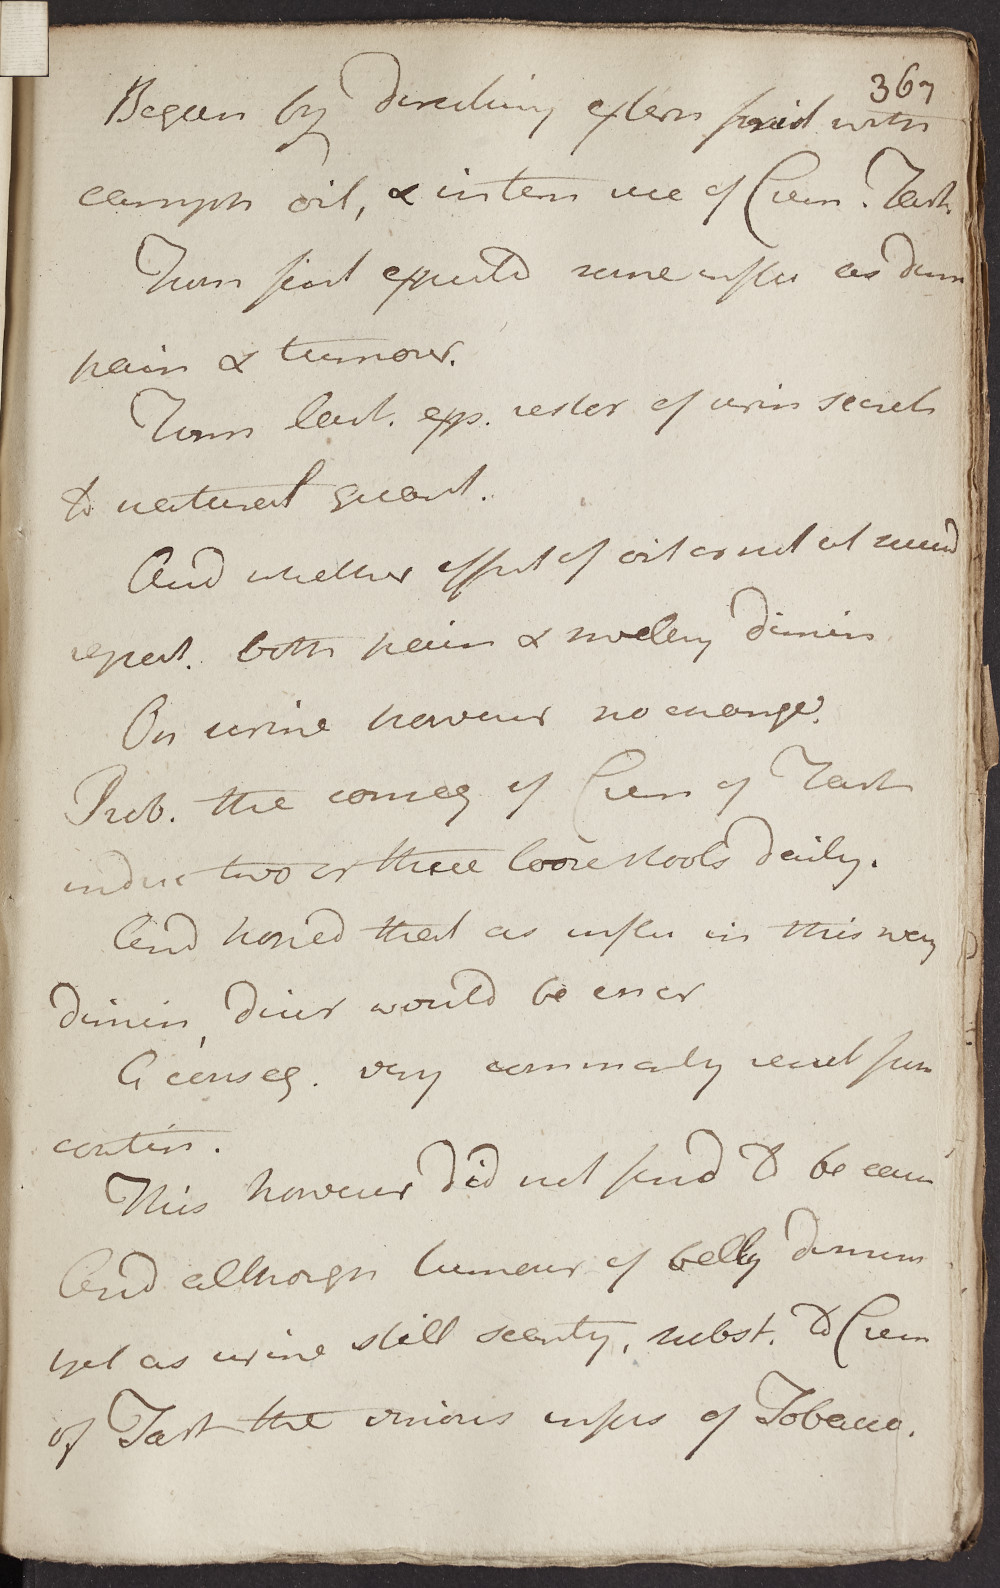 367
Began by directing extern frict with
camph oil, & intern use of Crem. Tart.
From first expected some influ as dimin
pain & tumour.
From last. exp. restor of urin secret
to natural quant.
And whether effect of oil or not at second
report. both pain & swelling dimin
On urine however no change.
Prob. the conseq of Crem of Tart
induc two or three loose stools daily.
And hoped that as influ in this way
dimin, diur would be
A conseq. very commonly result from
contin.
This however did not find to be case
And although tumour of belly dimin
yet as urine still scanty, subst. to Crem
of Tart the vinous infus of Tobacco.